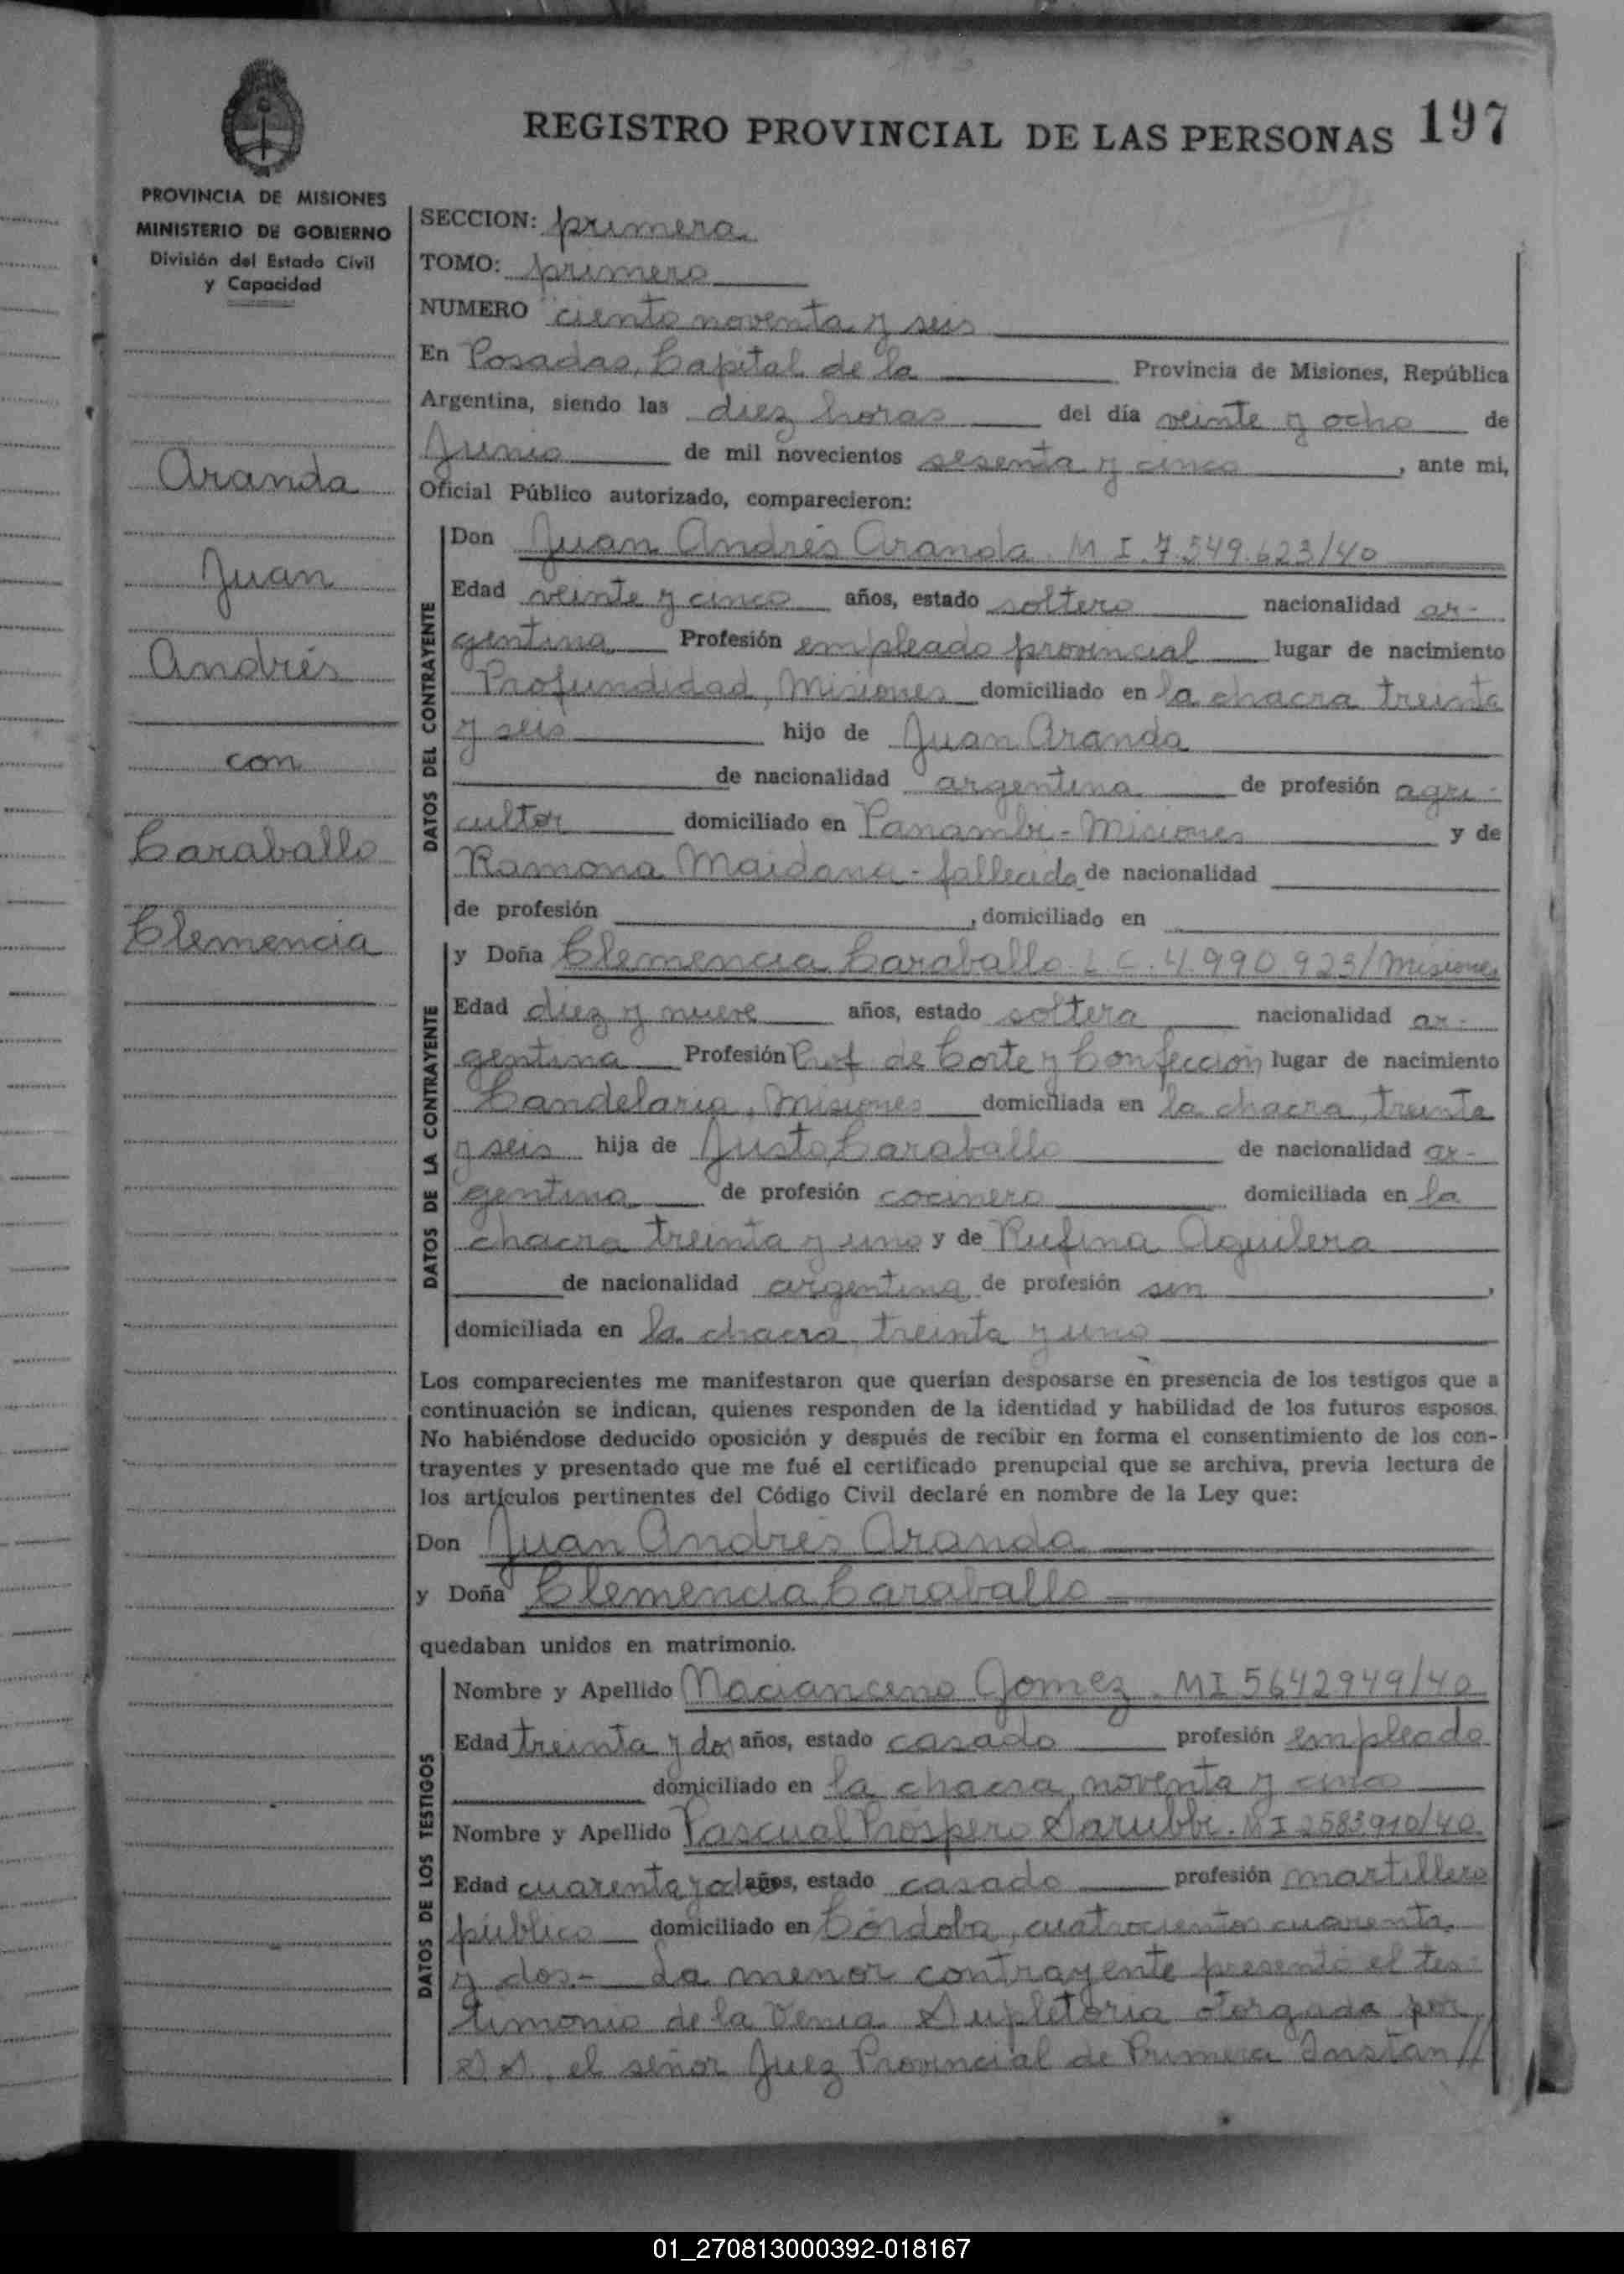 REGISTRO PROVINCIAL DE LAS PERSONAS 197
PROVINCIA DE MISIONES
MINISTERIO DE GOBIERNO
División del Estado Civil
y Capacidad
Aranda
Juan
Andrés
con
Caraballo
Clemencia
SECCION: primera
TOMO: primero
NUMERO ciento noventa y seis
En Posadas, Capital de la Provincia de Misiones, República
Argentina, siendo las diez horas del día veinte y ocho de
Junio de mil novecientos sesenta y cinco, ante mi,
Oficial Público autorizado, comparecieron:
DATOS DEL CONTRAYENTE
Don Juan Andrés Aranda. M I. 7.549.623/40
Edad veinte y cinco años, estado soltero nacionalidad ar-
gentina Profesión empleado provincial lugar de nacimiento
Profundidad, Misiones domiciliado en la chacra treinta
y seis hijo de Juan Aranda
de nacionalidad argentina de profesión agri-
cultor domiciliado en Panambi - Misiones y de
Ramona Maidana - fallecida de nacionalidad
de profesión , domiciliado en
DATOS DE LA CONTRAYENTE
y Doña Clemencia Caraballo L C. 4.990.923/Misiones
Edad diez y nueve años, estado soltera nacionalidad ar-
gentina Profesión Prof de Corte y Confección lugar de nacimiento
Candelaria, Misiones domiciliada en la chacra treinta
y seis hija de Justo Caraballo de nacionalidad ar-
gentina de profesión cocinero domiciliada en la
chacra treinta y uno y de Rufina Aguilera
de nacionalidad argentina de profesión sin ,
domiciliada en la chacra treinta y uno
Los comparecientes me manifestaron que querían desposarse en presencia de los testigos que a
continuación se indican, quienes responden de la identidad y habilidad de los futuros esposos.
No habiéndose deducido oposición y después de recibir en forma el consentimiento de los con-
trayentes y presentado que me fué el certificado prenupcial que se archiva, previa lectura de
los artículos pertinentes del Código Civil declaré en nombre de la Ley que:
Don Juan Andrés Aranda
y Doña Clemencia Caraballo
quedaban unidos en matrimonio.
DATOS DE LOS TESTIGOS
Nombre y Apellido Gomez. MI 5642949/40
Edad treinta y dos años, estado casado profesión empleado
domiciliado en la chacra noventa y cinco
Nombre y Apellido Pascual Próspero Sarubbi. MI 2583910/40
Edad cuarenta y años, estado casado profesión martillero
público domiciliado en Córdoba, cuatrocientos cuarenta
y dos.- La menor contrayente presentó el tes-
timonio de la Venia Supletoria otorgada por
S. S. el señor Juez Provincial de Primera Instan//
01_270813000392-018167